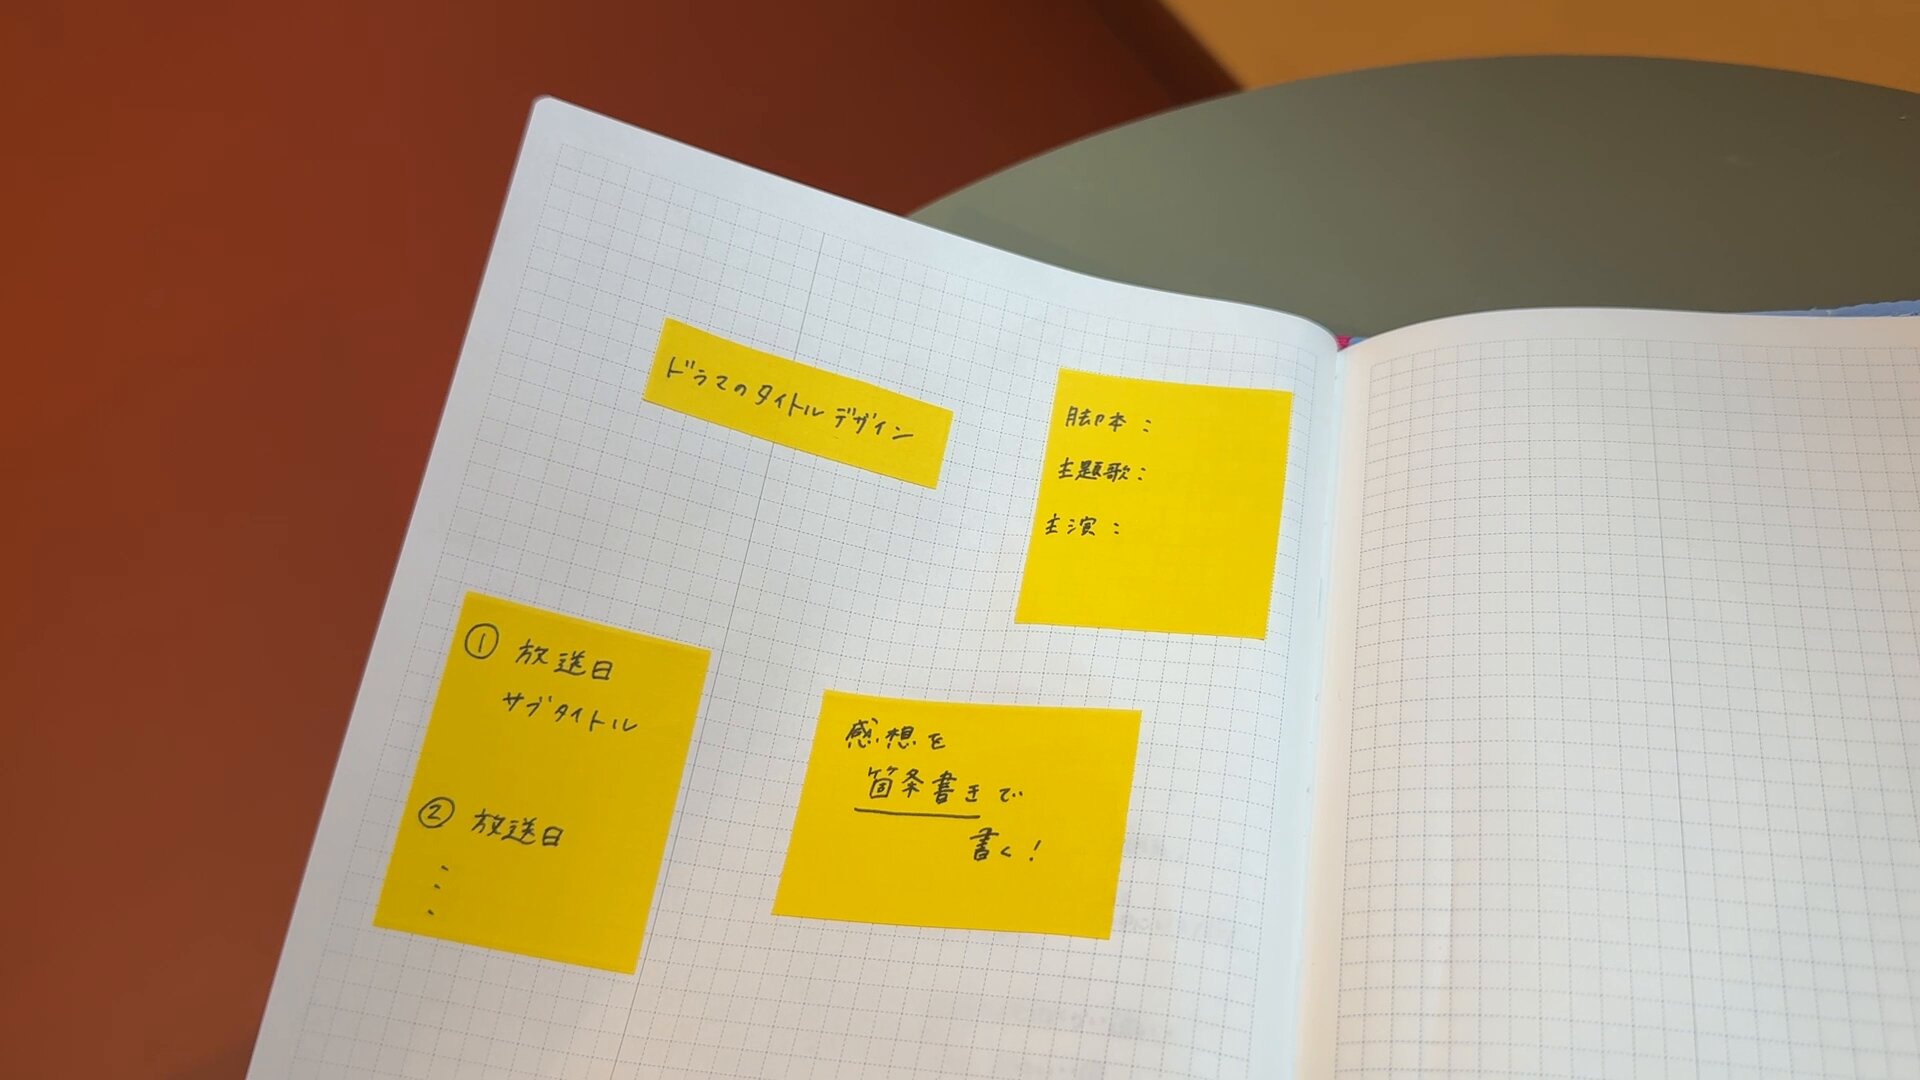 ドラマのタイトルデザイン
脚本：
主題歌：
主演：
① 放送日
サブタイトル
② 放送日
⋮
感想を
箇条書きで
書く！